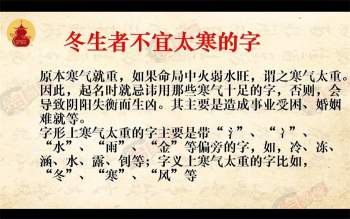 冬生者不宜太寒的字
原本寒气就重，如果命局中火弱水旺，谓之寒气太重。
因此，起名时就忌讳用那些寒气十足的字，否则，会
导致阴阳失衡而生凶。其主要是造成事业受困、婚姻
难就等。
字形上寒气太重的字主要是带“氵”、“冫”、
“水”、“雨”、“金”等偏旁的字，如，冷、冻、
涵、水、露、钊等；字义上寒气太重的字比如，
“冬”、“寒”、“风”等